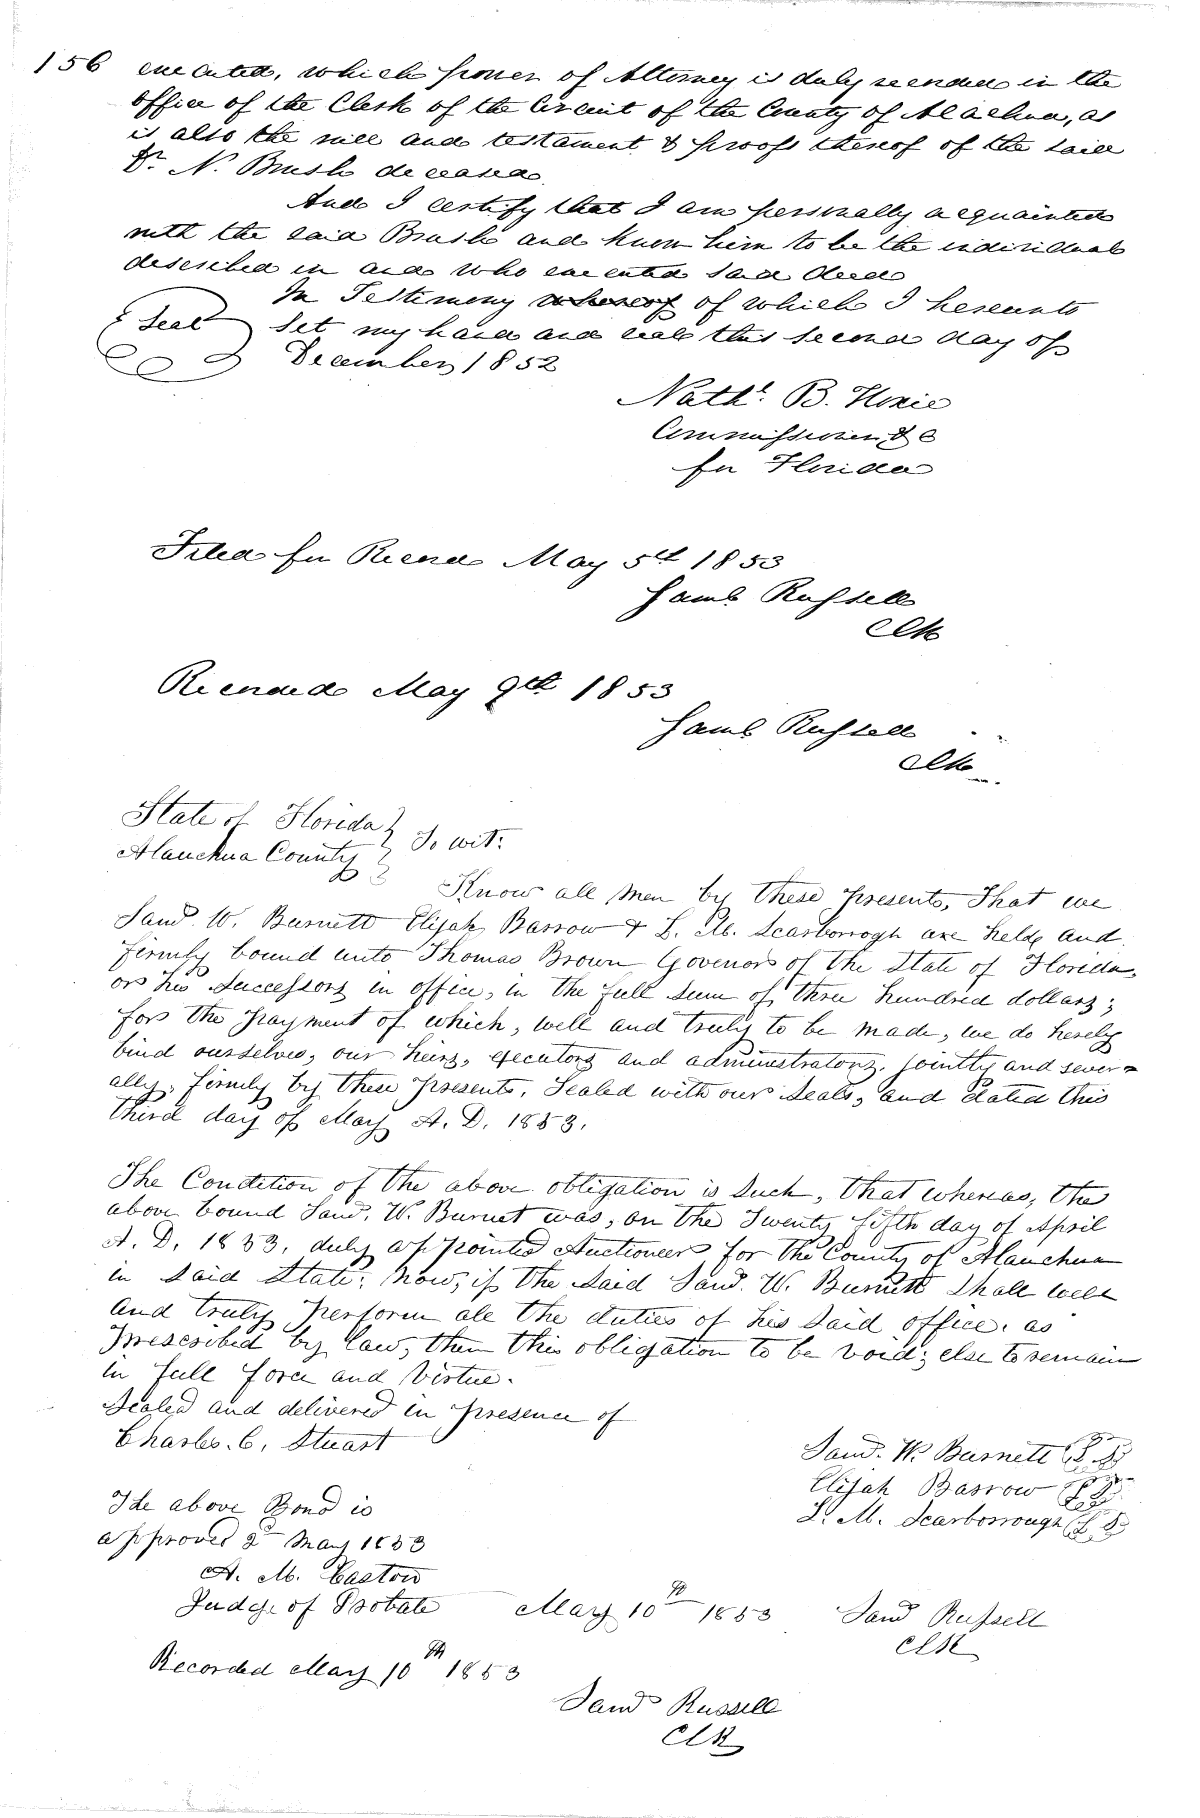 156 executed, which power of Attorney is duly recorded in the
office of the Clerk of the Circuit of the County of Alachua, as
is also the will and testament & proofs thereof of the said
Dr. N. Brush deceased.
And I certify that I am personally acquainted
with the said Brush and know him to be the individual
described in and who executed said deed
In Testimony whereof of which I hereunto
Seal set my hand and seal this second day of
December, 1852
Nathl. B. Hoxie
Commissioner, &c
for Florida
Filed for Record May 5th 1853
Saml Russell
Clk
Recorded May 9th 1853
Saml Russell
Clk
State of Florida
Alauchua County } To wit:
Know all men by these presents, That we
Saml. W. Burnett Elijah Barrow & L. M. Scarborrogh are held and
firmly bound unto Thomas Brown Govenor of the State of Florida
or his successors in office, in the full sum of three hundred dollars;
for the payment of which, well and truly to be made, we do hereby
bind ourselves, our heirs, executors and administrators, jointly and sever=
ally, firmly by these presents, Sealed with our seals, and dated this
third day of May A. D. 1853.
The Condition of the above obligation is such, that whereas, the
above bound Saml. W. Burnet was, on the Twenty fifth day of April
A. D. 1853, duly appointed Auctioneer for the County of Alauchua
in said State: Now, if the said Saml. W. Burnett shall well
and truly perform all the duties of his said office, as
prescribed by law, then this obligation to be void; else to remain
in full force and virtue.
Sealed and delivered in presence of
Charles. C. Stuart
Saml. W. Burnett (L S)
Elijah Barrow (L S)
L. M. Scarborrough (L S)
The above Bond is
approved 2d May 1853
A. M. Caston
Judge of Probate May 10th 1853 Saml Russell
Clk
Recorded May 10th 1853
Saml Russell
Clk